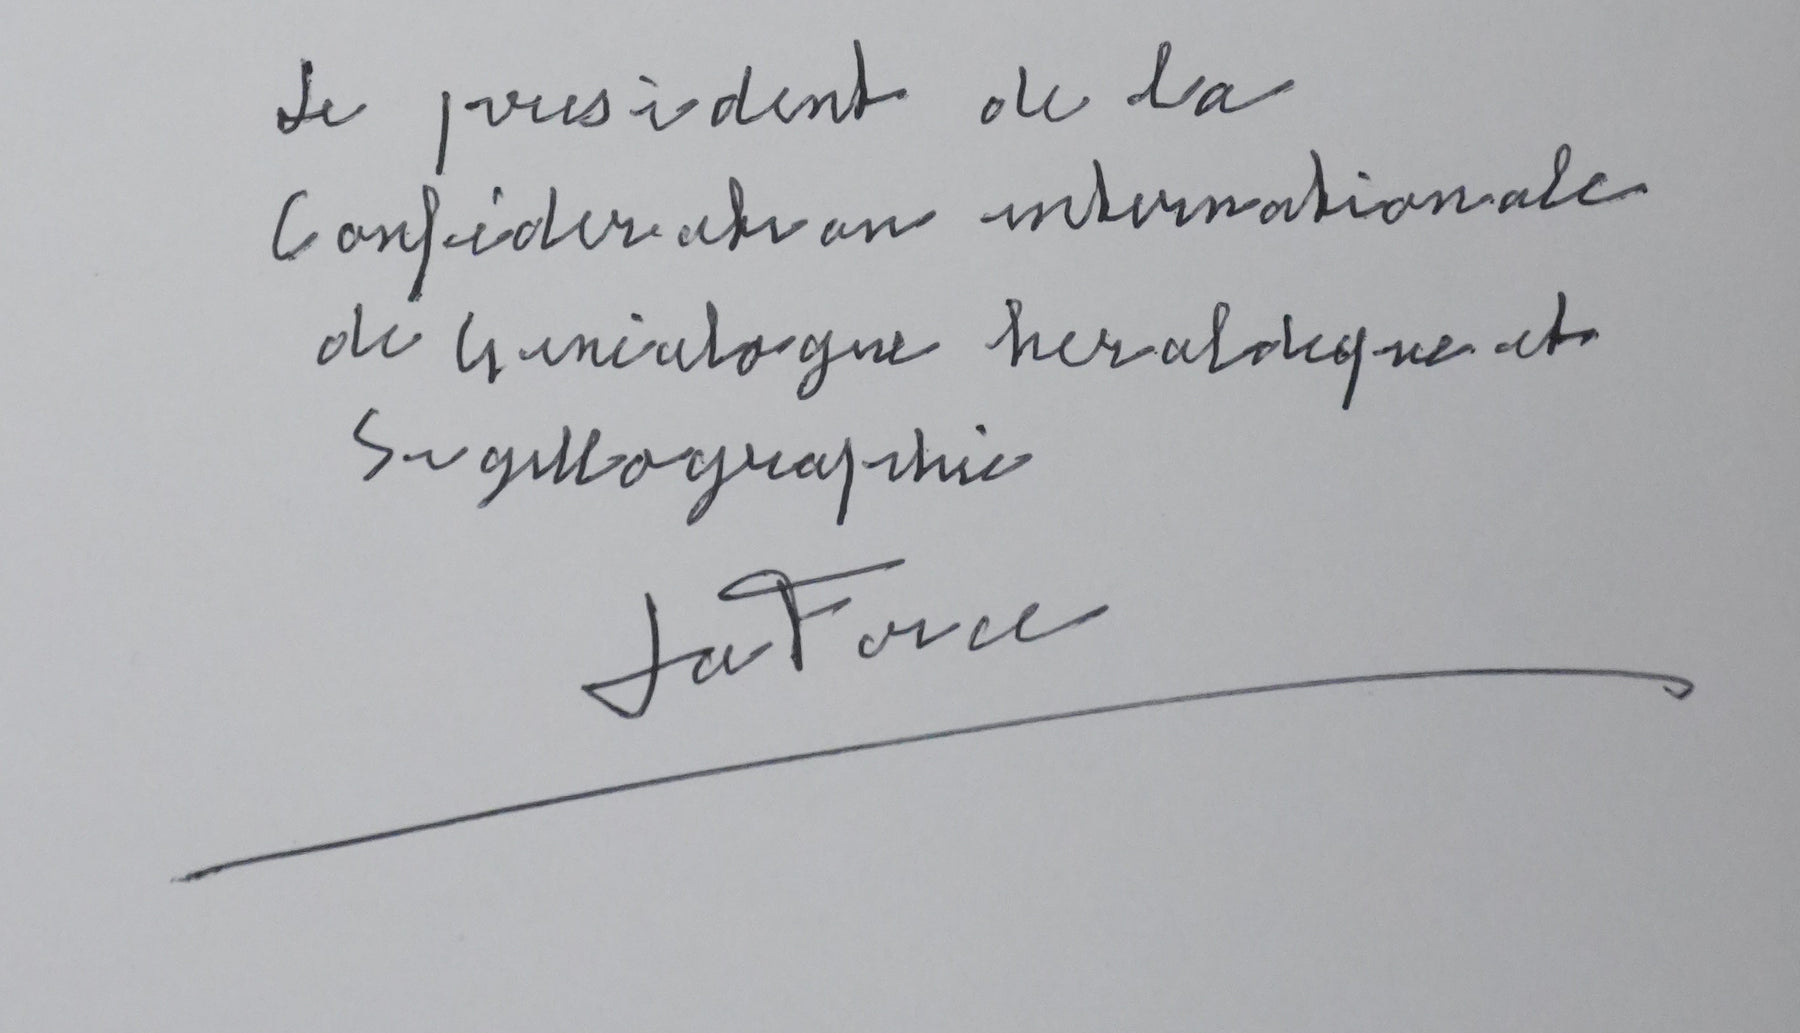 Le president de la
Confédération internationale
de Généalogie heraldique et
Sigillographie
La Force